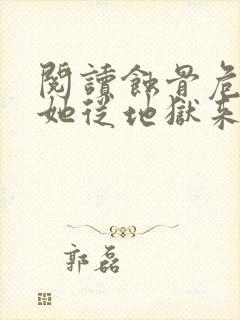 閱讀蝕骨危
她從地獄來
郭磊